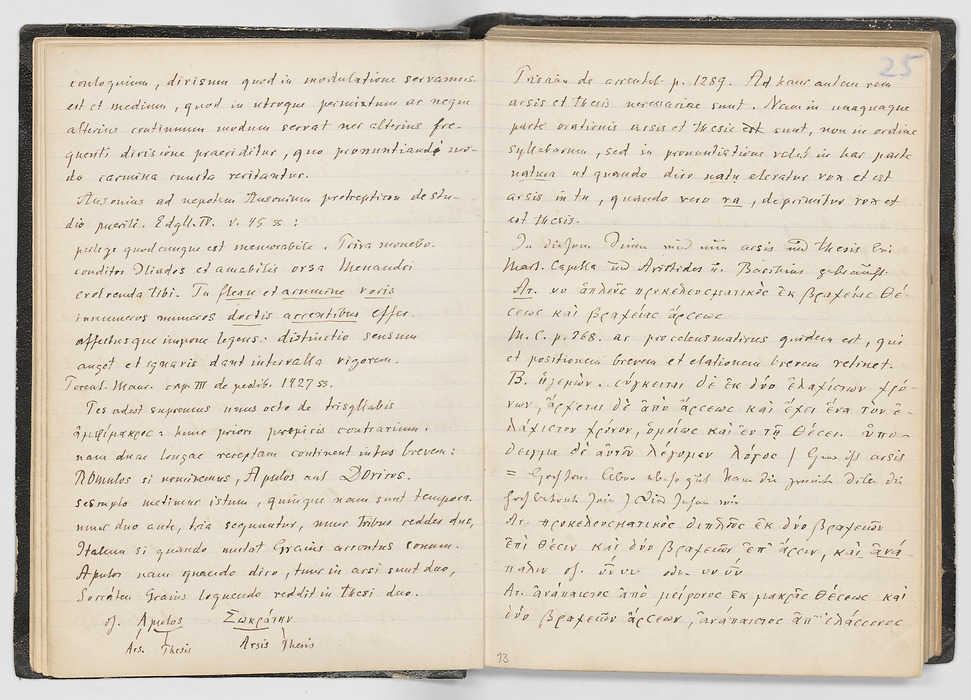 conloquium, divisum quod in modulatione servamus
est et medium, quod in utroque permixtum ac neque
alterius continuum modum servat nec alterius fre-
quenti divisione praeciditur, quo pronuntiandi mo-
do carmina cuncta recitantur.
Ausonius ad nepotem Ausonium protrepticon de stu-
dio puerili. Edyll. IV. v. 45 ss:
perlege quodcunque est memorabile. Prima monebo.
conditor Iliados et amabilis orsa Menandri
evolvenda tibi. Tu flexu et acumine vocis
innumeros numeros doctis accentibus effer.
affectusque impone legens: distinctio sensum
auget et ignavis dant intervalla vigorem.
Terent. Maur. cap. III de pedib. 1427 ss.
Pes adest supremus unus octo de trisyllabis
ἀμφίμακρος: hunc priori perspicis contrarium.
nam duae longae receptam continent intus brevem:
Romulos si nominemus, Apulos aut Doricos.
sescuplo metimur istum, quinque nam sunt tempora.
nunc duo ante, tria sequuntur, nunc tribus reddes duo,
Italum si quando mutat Graius accentus sonum.
Apulos nam quando dico, tunc in arsi sunt duo,
Socraten Graius loquendo reddit in thesi duo.
cf. Apulos Σωκράτην
Ars. Thesis Arsis Thesis
25
Priscian de accentib. p. 1289. Ad hanc autem rem
arsis et thesis necessariae sunt. Nam in unaquaque
parte orationis arsis et thesis est sunt, non in ordine
syllabarum, sed in pronuntiatione velut in hac parte
natura ut quando dico natu elevatur vox et est
arsis in tu, quando vero ra, deprimitur vox et
est thesis.
In diesem Sinne wird nun arsis und thesis bei
Mart. Capella und Aristides u. Bacchius gebraucht.
Ar. ὁ ἁπλοῦς προκελευσματικὸς ἐκ βραχείας θέ-
σεως καὶ βραχείας ἄρσεως
M. C. p. 368. ac proceleusmaticus quidem est, qui
et positionem brevem et elationem brevem retinet.
B. ἡγεμὼν. σύγκειται δὲ ἐκ δύο ἐλαχίστων χρό-
νων, ἄρχεται δὲ ἀπὸ ἄρσεως καὶ ἔχει ἕνα τὸν ἐ-
λάχιστον χρόνον, ὁμοίως καὶ ἐν τῇ θέσει. ὑπό-
δειγμα δὲ αὐτοῦ λέγομεν λόγος (Hier ist arsis
= Hochton. Ebenso gut kann die zweite Silbe die
hochbetonte sein) Und sehen wir
Ar. προκελευσματικὸς διπλοῦς ἐκ δύο βραχειῶν
ἐπὶ θέσιν καὶ δύο βραχειῶν ἐπ' ἄρσιν, καὶ ἀνά-
παλιν
Ar. ἀνάπαιστος ἀπὸ μείζονος ἐκ μακρᾶς θέσεως καὶ
δύο βραχειῶν ἄρσεων, ἀνάπαιστος ἀπ' ἐλάσσονος
13